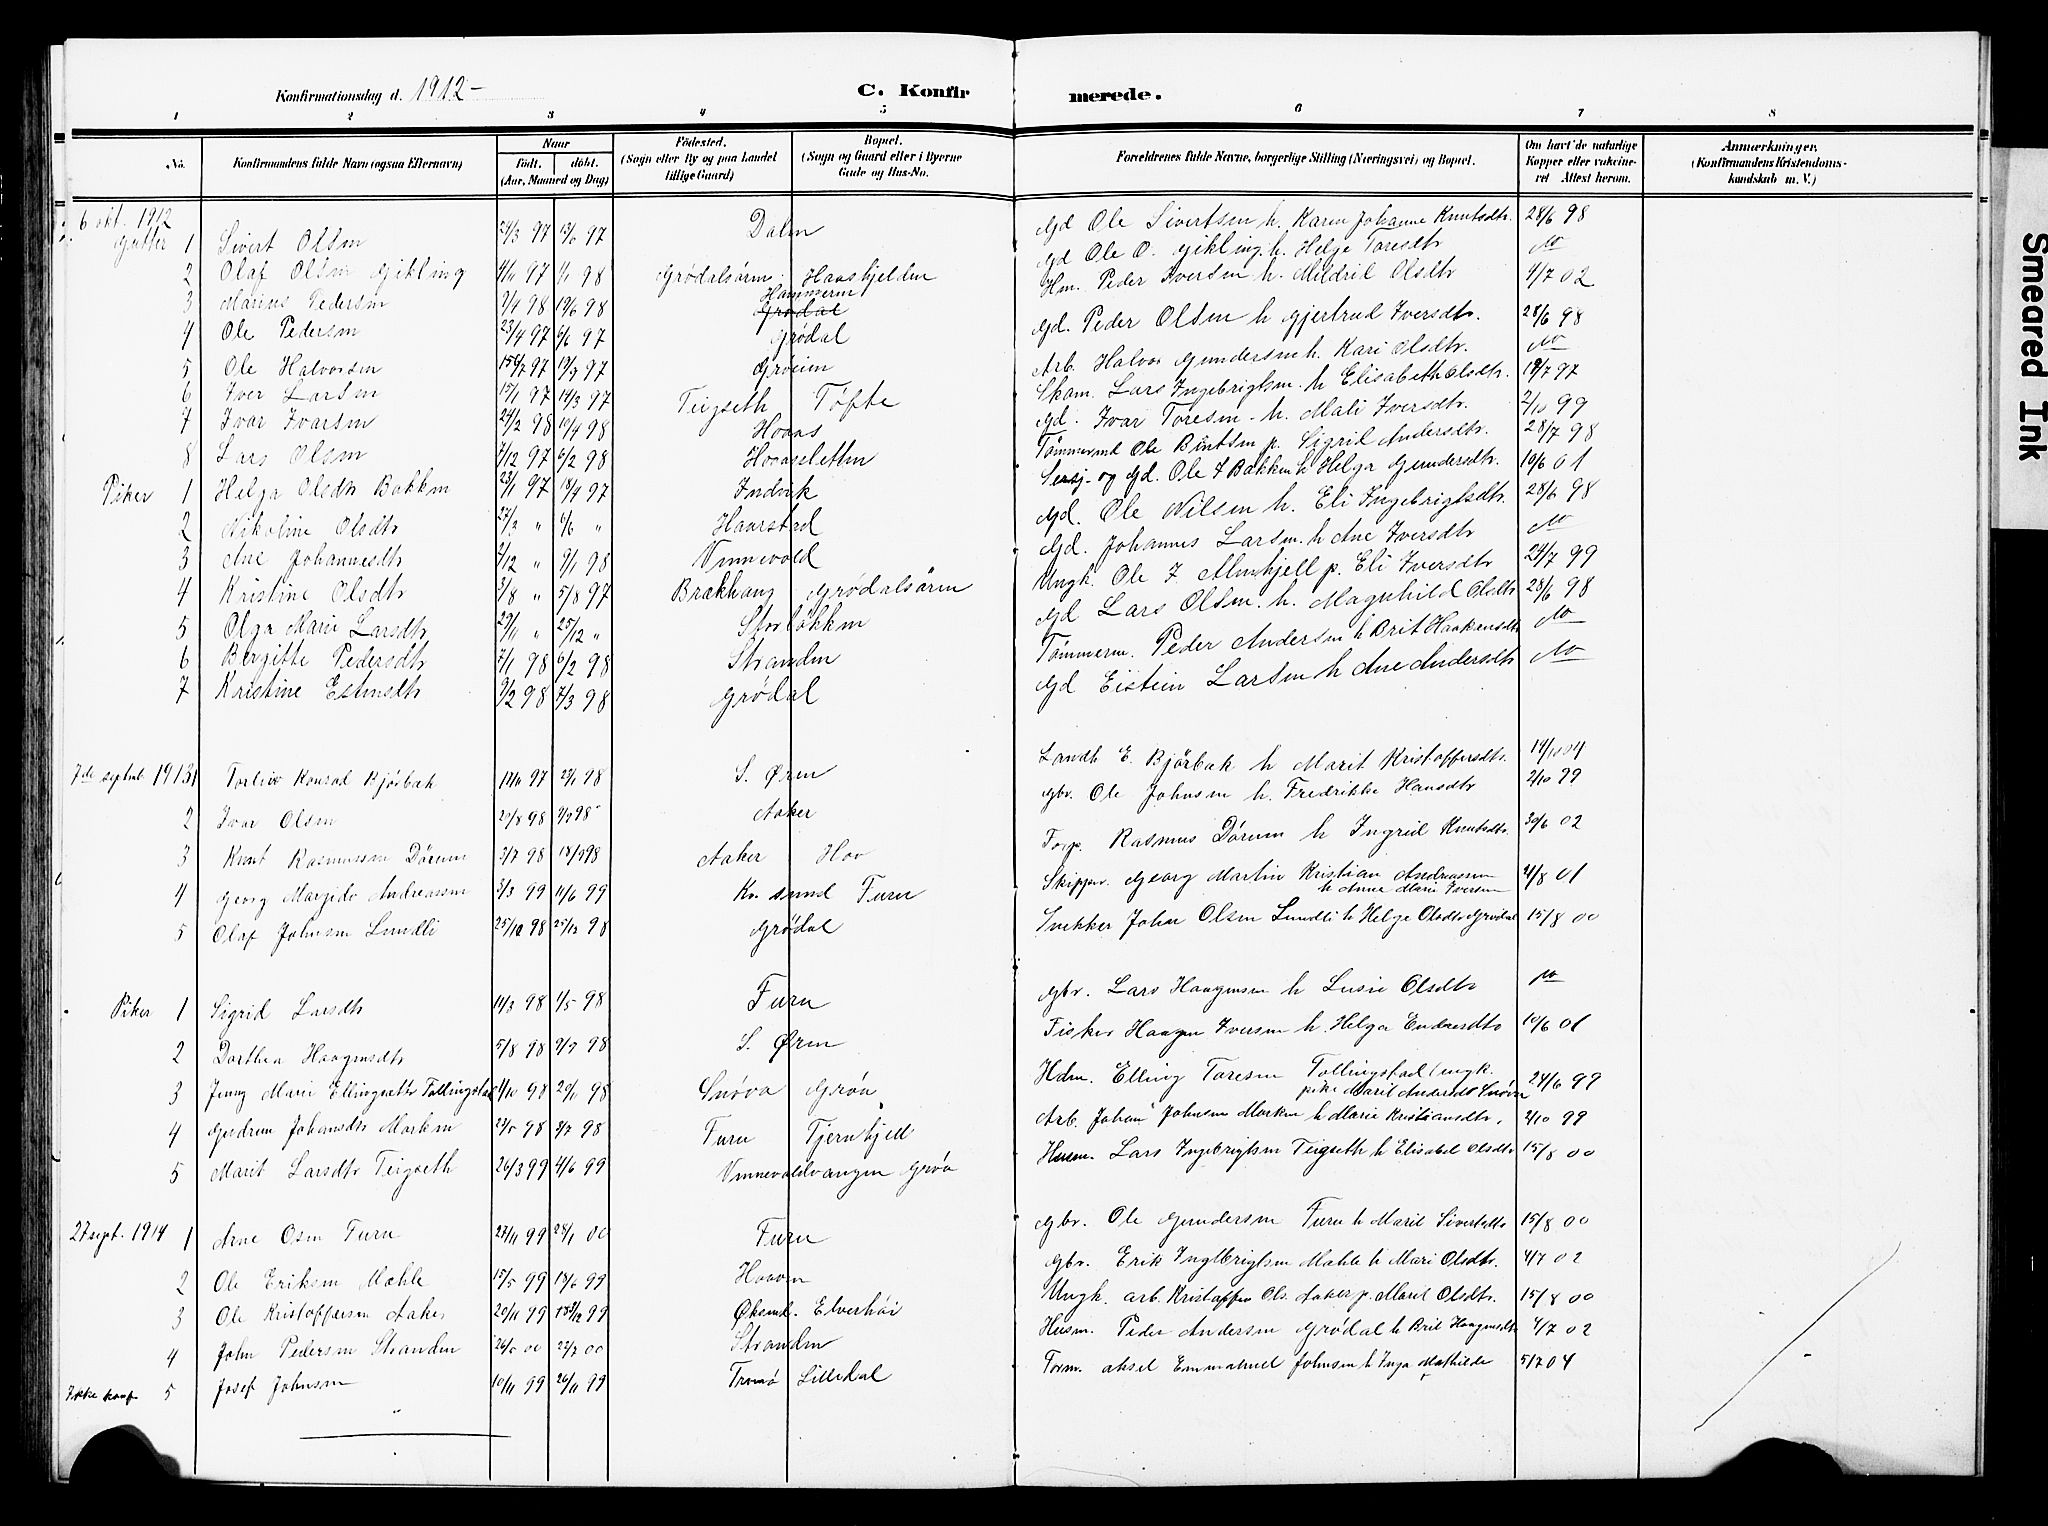 Konfirmationsdag d. 1912-
C. Konfirmerede.
1 2 3 4 5 6 7 8
No. Konfirmandens fulde Navn (ogsaa Efternavn) Naar født. døbt. (Aar, Maaned og Dag) Fødested. (Sogn eller By og paa Landet tillige Gaard) Bopæl. (Sogn og Gaard eller i Byerne Gade og Hus-No. Forældrenes fulde Navne, borgerlige Stilling (Næringsvei) og Bopæl. Om havt de naturlige Kopper eller vaccineret. Attest herom. Anmærkninger. (Konfirmandens Kristendomskundskab m. V.)
6 okt. 1912
Gutter 1 Sivert Olsen 24/3 97 Dalen Gd Ole Sivertsen h. Karen Johanne Knutsdtr. 28/6 98
2 Olaf Olsen Gikling 4/11 97 1/1 98 Grødalsøren Haaskjølden Gd Ole O. Gikling h. Helge Toresdtr
3 Marius Pedersen 2/1 98 19/6 98 Hammeren Grødal Hm. Peder Iversen h. Mildrid Olsdtr 4/7 02
4 Ole Pedersen 23/4 97 6/6 97 Grødal Gd. Peder Olsen h Gjertrud Iversdtr. 28/6 98
5 Ole Halvorsen Grøeim Arb. Halvor Gundersen h. Kari Olsdtr.
6 Iver Larsen 17/1 97 14/3 97 Teigseth Tøfte Skom. Lars Ingebrigtsen h Elisabeth Olsdtr. 19/7 97
7 Ivar Ivarsen 24/2 98 10/4 98 Hoaas Gd. Ivar Toresen h. Mali Iversdtr. 2/10 99
8 Lars Olsen 7/12 97 6/2 98 Hoaasletten Tømmermd Ole Bintsen p. Sigrid Andersdtr. 28/7 98
Piker 1 Helga Olsdtr Bakken 23/1 97 18/4 97 Indvik Sersj- og Gd. Ole I Bakken h Helga Gundersdtr. 10/6 01
2 Nikoline Olsdtr 27/3 " 6/6 " Haarstad Gd. Ole Nilsen h. Eli Ingebrigtsdtr. 28/6 98
3 Ane Johannesdtr 2/12 " 9/1 98 Vinnevold Gd. Johannes Larsen h Ane Iversdtr
4 Kristine Olsdtr 3/8 " 5/8 97 Brækhaug Grødalsøren Ungk. Ole I Almskjell p. Eli Iversdtr 24/7 99
5 Olga Marie Larsdtr 29/11 " 25/12 " Storløkken Gd Lars Olsen h. Magnhild Olsdtr 28/6 98
6 Bergitte Pedersdtr 7/1 98 6/2 98 Stranden Tømmerm. Peder Andersen h Brit Haakensdtr
7 Kristine Estensdtr 9/2 98 7/3 98 Grødal Gd Eistein Larsen h Ane Andersdtr
7de septemb 1913 1 Torleiv Konrad Bjørbak S. Øren Landh E. Bjørbak h Marit Kristoffersdtr. 14/10 04
2 Ivar Olsen 29/8 98 Aaker Gbr. Ole Johnsen h. Fredrikke Hansdtr 2/10 99
3 Knut Rasmussen Dørum 3/7 98 18/9 98 Aaker Hov Forp. Rasmus Dørum h Ingrid Knutsdtr. 30/6 02
4 Georg Margido Andreassen 3/3 99 11/6 99 Kr. sund Furu Skipper. Georg Martin Kristian Andreassen h Anne Marie Iversen 4/8 01
5 Olaf Johnsen Lundli 25/10 98 25/12 98 Grødal Snekker John Olsen Lundli h Helge Olsdtr Grødal 15/8 00
Piker 1 Sigrid Larsdtr 14/3 98 1/5 98 Furu Gbr. Lars Haagensen h Lusie Olsdtr
2 Dorthea Haagensdtr 5/8 98 S. Øren Fisker Haagen Iversen h. Helga Endresdtr 10/6 01
3 Jenny Marie Ellingsdtr Tallingstad Snøva Grøa Hdm. Elling Toresen Tollingstad (ungk. pike Marit Andersdt Snøven 24/6 99
4 Gudrun Johansdtr Morken Furu Tjernhjell Arb. Johan Johnsen Morken h Marie Kristiansdtr. 2/10 99
5 Marit Larsdtr Teigseth 26/3 99 4/6 99 Vinnevoldvangen Grøa Husm. Lars Ingebrigtsen Teigseth h Elisabet Olsdtr 15/8 00
27 sept. 1914 1 Arne Osen Furu 27/11 99 28/1 00 Furu Gbr. Ole Gundersen Furu h Marit Sivertsdtr 15/8 00
2 Ole Eriksen Mæhle 15/5 99 18/6 99 Hoaven Gbr. Erik Ingebrigtsen Mæhle h Mari Olsdtr. 4/7 02
3 Ole Kristoffersen Aaker 20/11 99 Øksend. Elverhøi Ungk. arb. Kristoffer Ols. Aaker p. Marit Olsdtr. 15/8 00
4 John Pedersen Stranden Stranden Husm. Peder Andersen Grødal h Brit Haagensdtr 4/7 02
Ikke konf 5 Josef Johnsen 10/11 99 26/11 99 Tromsø Lilledal Form. Aksel Emmanuel Johnsen h Inga Mathilde 5/7 04
Smeared Ink